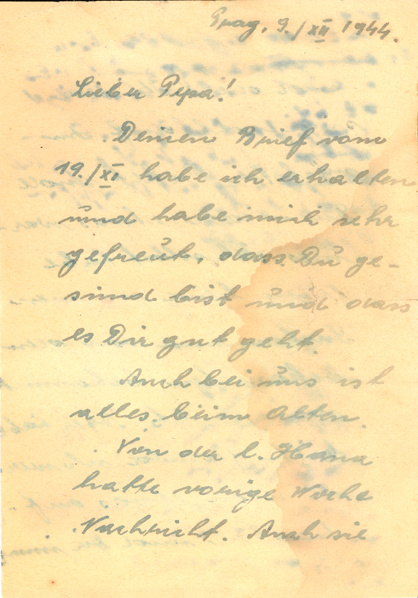 Prag, 9./XII 1944.
Lieber Pepa!
Deinen Brief vom
19./XI habe ich erhalten
und habe mich sehr
gefreut, dass Du ge-
sund bist und dass
es Dir gut geht.
Auch bei uns ist
alles beim Alten.
Von der l. Hana
hatte vorige Woche
Nachricht. Auch sie